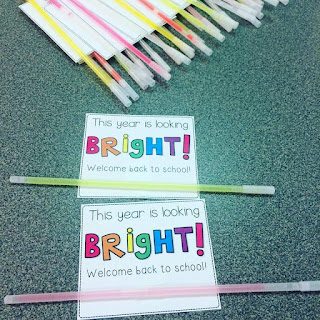 This year is looking
BRiGHT!
Welcome back to school!
This year is looking
BRiGHT!
Welcome back to school!